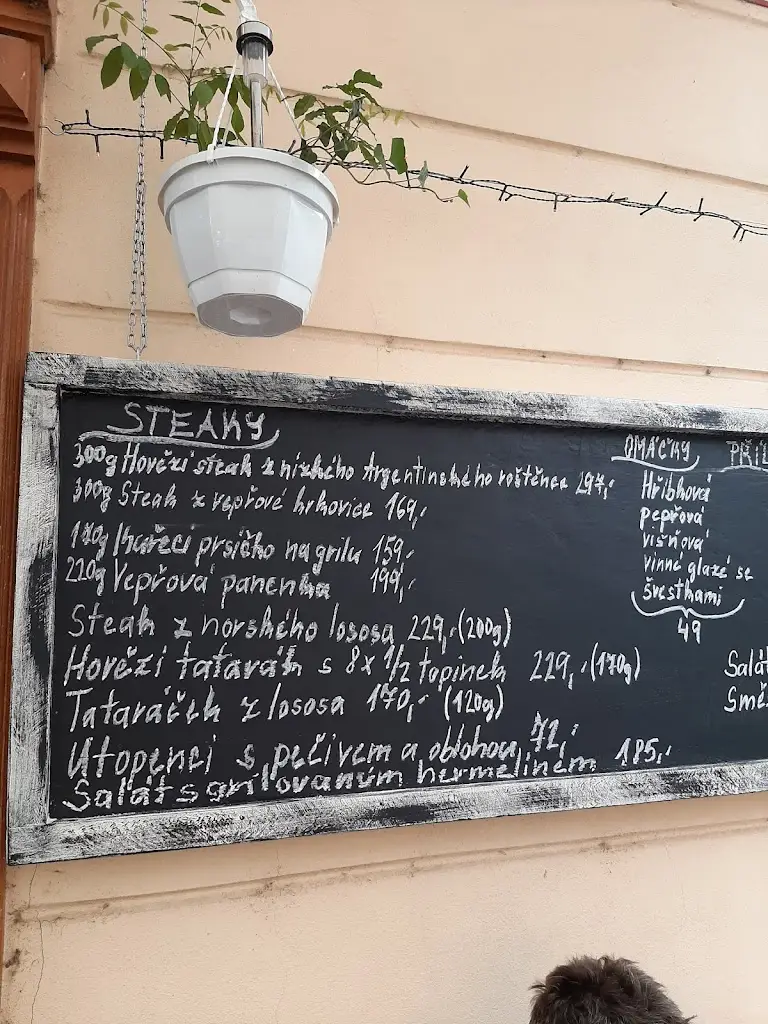 STEAKY
300g Hovězí steak z nízkého Argentinského roštěnce 297,-
300g Steak z vepřové krkovice 169,-
170g Kuřecí prsíčko na grilu 159,-
220g Vepřová panenka 199,-
Steak z norského lososa 229,- (200g)
Hovězí tatarák s 8x 1/2 topinek 229,- (170g)
Tataráček z lososa 170,- (120g)
Utopenci s pečivem a oblohou 72,-
Salát s grilovaným hermelínem 185,-
OMÁČKY
Hřibková
pepřová
višňová
vinné glazé se
švestkami
49
PŘÍL
Salát
Smě